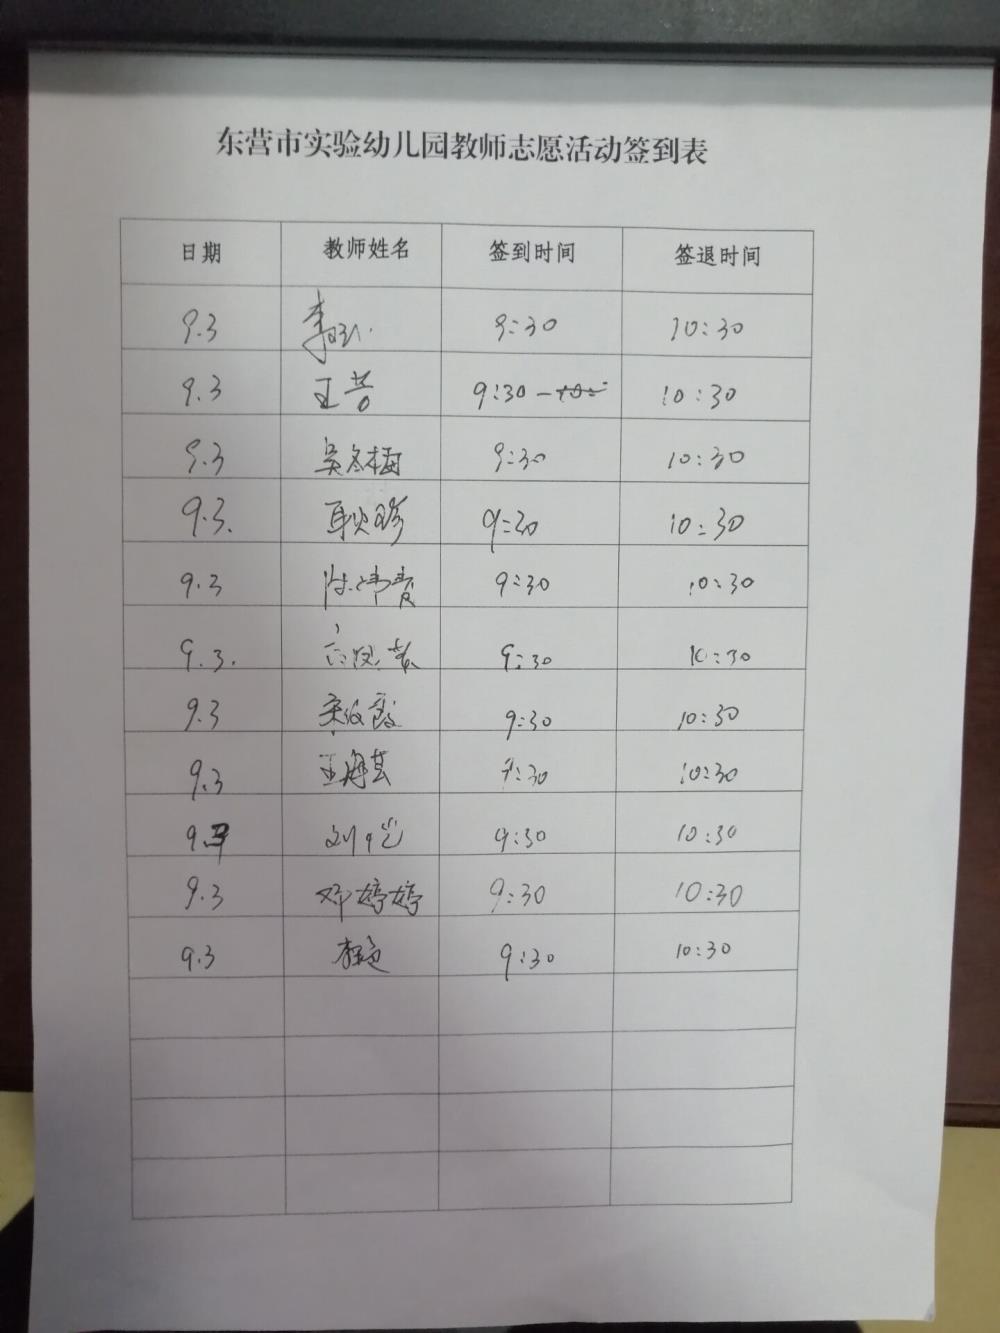 东营市实验幼儿园教师志愿活动签到表
日期 教师姓名 签到时间 签退时间
9.3 9:30 10:30
9.3 王芸 9:30 10:30
9.3 吴冬梅 9:30 10:30
9.3. 耿珍 9:30 10:30
9.3 陈炜青 9:30 10:30
9.3. 9:30 10:30
9.3 9:30 10:30
9.3 王海芸 9:30 10:30
9.3 9:30 10:30
9.3 邓婷婷 9:30 10:30
9.3 9:30 10:30